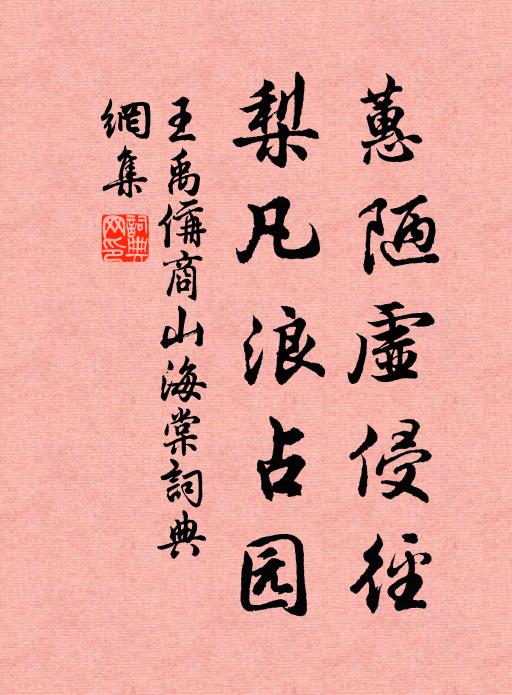 蕙陋虛侵徑
梨凡浪占园
王禹偁商山海棠詞典
網集
詞典
网印